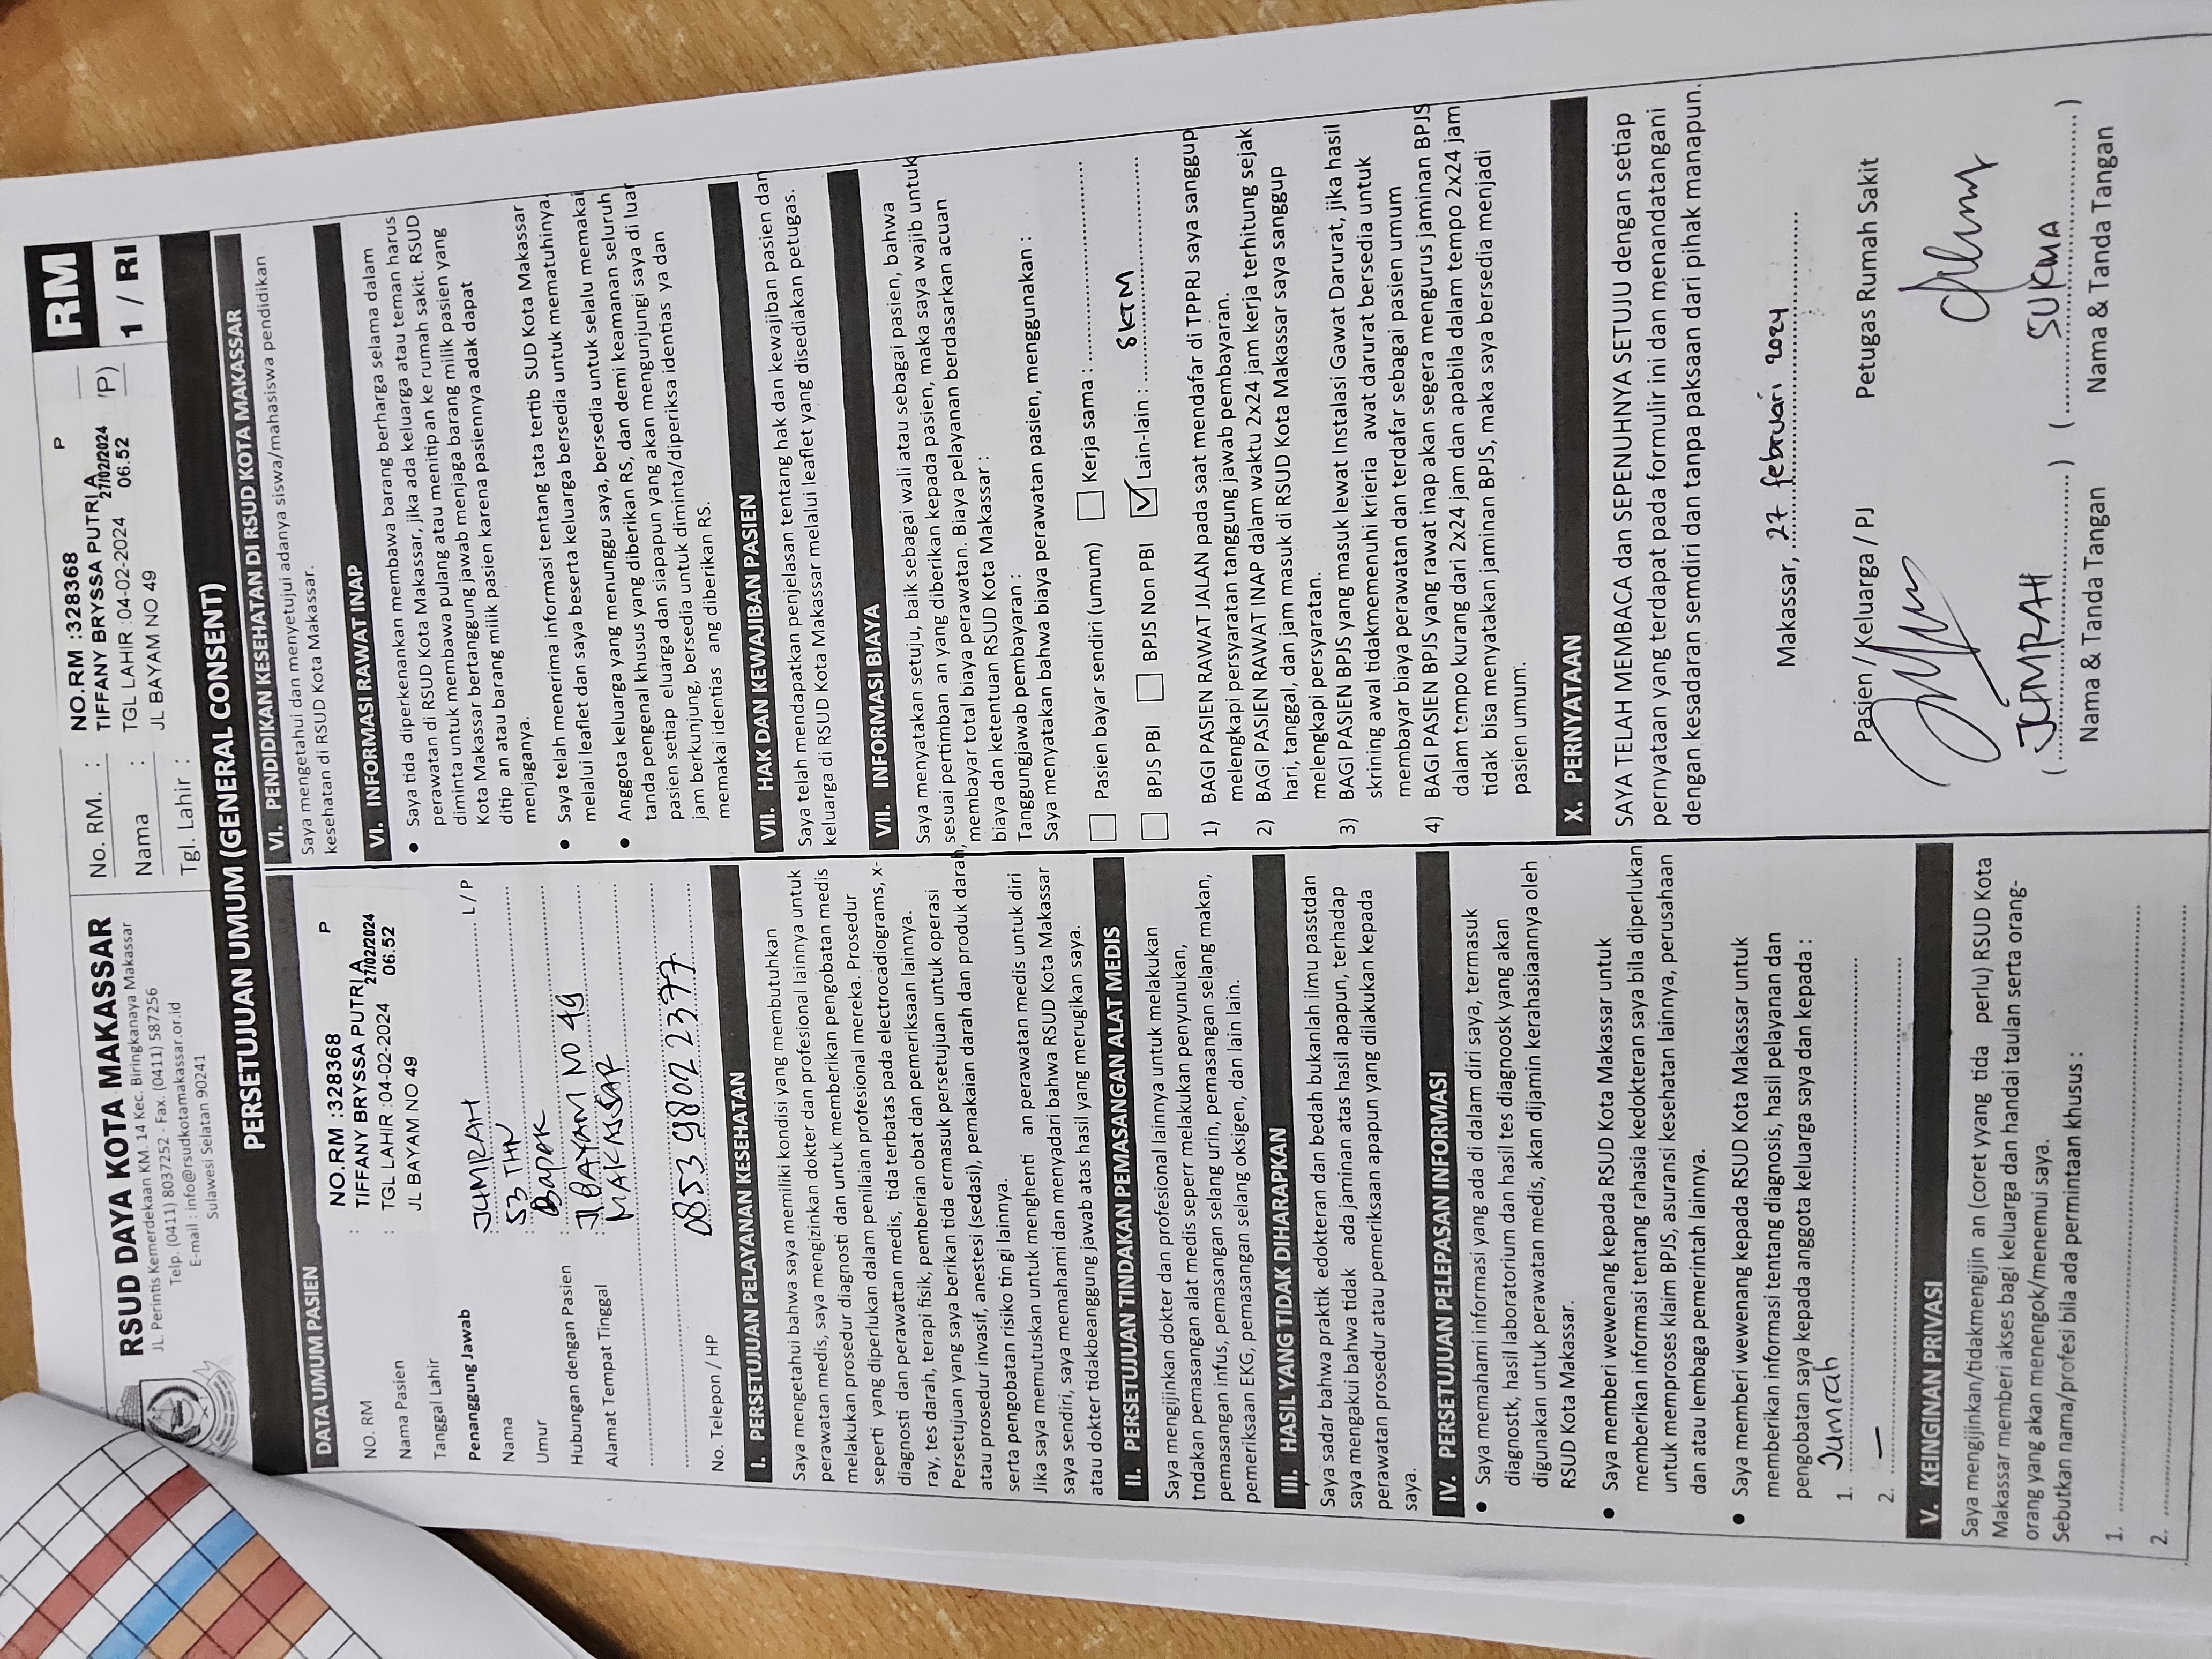 RSUD DAYA KOTA MAKASSAR
JL. Perintis Kemerdekaan KM. 14 Kec. Biringkanaya Makassar
Telp. (0411) 8037252 - Fax. (0411) 587256
E-mail : info@rsudkotamakassar.or.id
Sulawesi Selatan 90241
No. RM. :
Nama :
Tgl. Lahir :
NO.RM :328368 P
TIFFANY BRYSSA PUTRI A
27/02/2024
TGL LAHIR :04-02-2024 06.52
JL BAYAM NO 49
/P)
RM
1 / RI
PERSETUJUAN UMUM (GENERAL CONSENT)
DATA UMUM PASIEN
NO. RM :
Nama Pasien
Tanggal Lahir :
NO.RM :328368 P
TIFFANY BRYSSA PUTRI A
27/02/2024
TGL LAHIR :04-02-2024 06.52
JL BAYAM NO 49
Penanggung Jawab
Nama : JUMRAH L / P
Umur : 53 THN
Hubungan dengan Pasien : Bapak
Alamat Tempat Tinggal : Jl. BAYAM NO 49
MAKASSAR
No. Telepon / HP 0853 9802 2377
I. PERSETUJUAN PELAYANAN KESEHATAN
Saya mengetahui bahwa saya memiliki kondisi yang membutuhkan
perawatan medis, saya mengizinkan dokter dan profesional lainnya untuk
melakukan prosedur diagnosti dan untuk memberikan pengobatan medis
seperti yang diperlukan dalam penilaian profesional mereka. Prosedur
diagnosti dan perawattan medis, tida terbatas pada electrocadiograms, x-
ray, tes darah, terapi fisik, pemberian obat dan pemeriksaan lainnya.
Persetujuan yang saya berikan tida ermasuk persetujuan untuk operasi
atau prosedur invasif, anestesi (sedasi), pemakaian darah dan produk darah,
serta pengobatan risiko tin gi lainnya.
Jika saya memutuskan untuk menghenti an perawatan medis untuk diri
saya sendiri, saya memahami dan menyadari bahwa RSUD Kota Makassar
atau dokter tidakbeanggung jawab atas hasil yang merugikan saya.
II. PERSETUJUAN TINDAKAN PEMASANGAN ALAT MEDIS
Saya mengijinkan dokter dan profesional lainnya untuk melakukan
tndakan pemasangan alat medis seperr melakukan penyunukan,
pemasangan infus, pemasangan selang urin, pemasangan selang makan,
pemeriksaan EKG, pemasangan selang oksigen, dan lain lain.
III. HASIL YANG TIDAK DIHARAPKAN
Saya sadar bahwa praktik edokteran dan bedah bukanlah ilmu pastdan
saya mengakui bahwa tidak ada jaminan atas hasil apapun, terhadap
perawatan prosedur atau pemeriksaan apapun yang dilakukan kepada
saya.
IV. PERSETUJUAN PELEPASAN INFORMASI
• Saya memahami informasi yang ada di dalam diri saya, termasuk
diagnostk, hasil laboratorium dan hasil tes diagnoosk yang akan
digunakan untuk perawatan medis, akan dijamin kerahasiaannya oleh
RSUD Kota Makassar.
• Saya memberi wewenang kepada RSUD Kota Makassar untuk
memberikan informasi tentang rahasia kedokteran saya bila diperlukan
untuk memproses klaim BPJS, asuransi kesehatan lainnya, perusahaan
dan atau lembaga pemerintah lainnya.
• Saya memberi wewenang kepada RSUD Kota Makassar untuk
memberikan informasi tentang diagnosis, hasil pelayanan dan
pengobatan saya kepada anggota keluarga saya dan kepada :
1. Jumrah
2. —
V. KEINGINAN PRIVASI
Saya mengijinkan/tidakmengijin an (coret yyang tida perlu) RSUD Kota
Makassar memberi akses bagi keluarga dan handai taulan serta orang-
orang yang akan menengok/menemui saya.
Sebutkan nama/profesi bila ada permintaan khusus :
1.
2.
VI. PENDIDIKAN KESEHATAN DI RSUD KOTA MAKASSAR
Saya mengetahui dan menyetujui adanya siswa/mahasiswa pendidikan
kesehatan di RSUD Kota Makassar.
VI. INFORMASI RAWAT INAP
• Saya tida diperkenankan membawa barang berharga selama dalam
perawatan di RSUD Kota Makassar, jika ada keluarga atau teman harus
diminta untuk membawa pulang atau menitip an ke rumah sakit. RSUD
Kota Makassar bertanggung jawab menjaga barang milik pasien yang
ditip an atau barang milik pasien karena pasiennya adak dapat
menjaganya.
• Saya telah menerima informasi tentang tata tertib SUD Kota Makassar
melalui leaflet dan saya beserta keluarga bersedia untuk mematuhinya.
• Anggota keluarga yang menunggu saya, bersedia untuk selalu memakai
tanda pengenal khusus yang diberikan RS, dan demi keamanan seluruh
pasien setiap eluarga dan siapapun yang akan mengunjungi saya di luar
jam berkunjung, bersedia untuk diminta/diperiksa identias ya dan
memakai identias ang diberikan RS.
VII. HAK DAN KEWAJIBAN PASIEN
Saya telah mendapatkan penjelasan tentang hak dan kewajiban pasien dan
keluarga di RSUD Kota Makassar melalui leaflet yang disediakan petugas.
VII. INFORMASI BIAYA
Saya menyatakan setuju, baik sebagai wali atau sebagai pasien, bahwa
sesuai pertimban an yang diberikan kepada pasien, maka saya wajib untuk
membayar total biaya perawatan. Biaya pelayanan berdasarkan acuan
biaya dan ketentuan RSUD Kota Makassar :
Tanggungjawab pembayaran :
Saya menyatakan bahwa biaya perawatan pasien, menggunakan :
Pasien bayar sendiri (umum) Kerja sama :
BPJS PBI BPJS Non PBI ✓ Lain-lain : SKTM
1) BAGI PASIEN RAWAT JALAN pada saat mendafar di TPPRJ saya sanggup
melengkapi persyaratan tanggung jawab pembayaran.
2) BAGI PASIEN RAWAT INAP dalam waktu 2x24 jam kerja terhitung sejak
hari, tanggal, dan jam masuk di RSUD Kota Makassar saya sanggup
melengkapi persyaratan.
3) BAGI PASIEN BPJS yang masuk lewat Instalasi Gawat Darurat, jika hasil
skrining awal tidakmemenuhi krieria awat darurat bersedia untuk
membayar biaya perawatan dan terdafar sebagai pasien umum
4) BAGI PASIEN BPJS yang rawat inap akan segera mengurus jaminan BPJS
dalam tempo kurang dari 2x24 jam dan apabila dalam tempo 2x24 jam
tidak bisa menyatakan jaminan BPJS, maka saya bersedia menjadi
pasien umum.
X. PERNYATAAN
SAYA TELAH MEMBACA dan SEPENUHNYA SETUJU dengan setiap
pernyataan yang terdapat pada formulir ini dan menandatangani
dengan kesadaran semdiri dan tanpa paksaan dari pihak manapun.
Makassar, 27 februari 2024
Pasien / Keluarga / PJ Petugas Rumah Sakit
( JUMRAH ) ( SUKMA )
Nama & Tanda Tangan Nama & Tanda Tangan